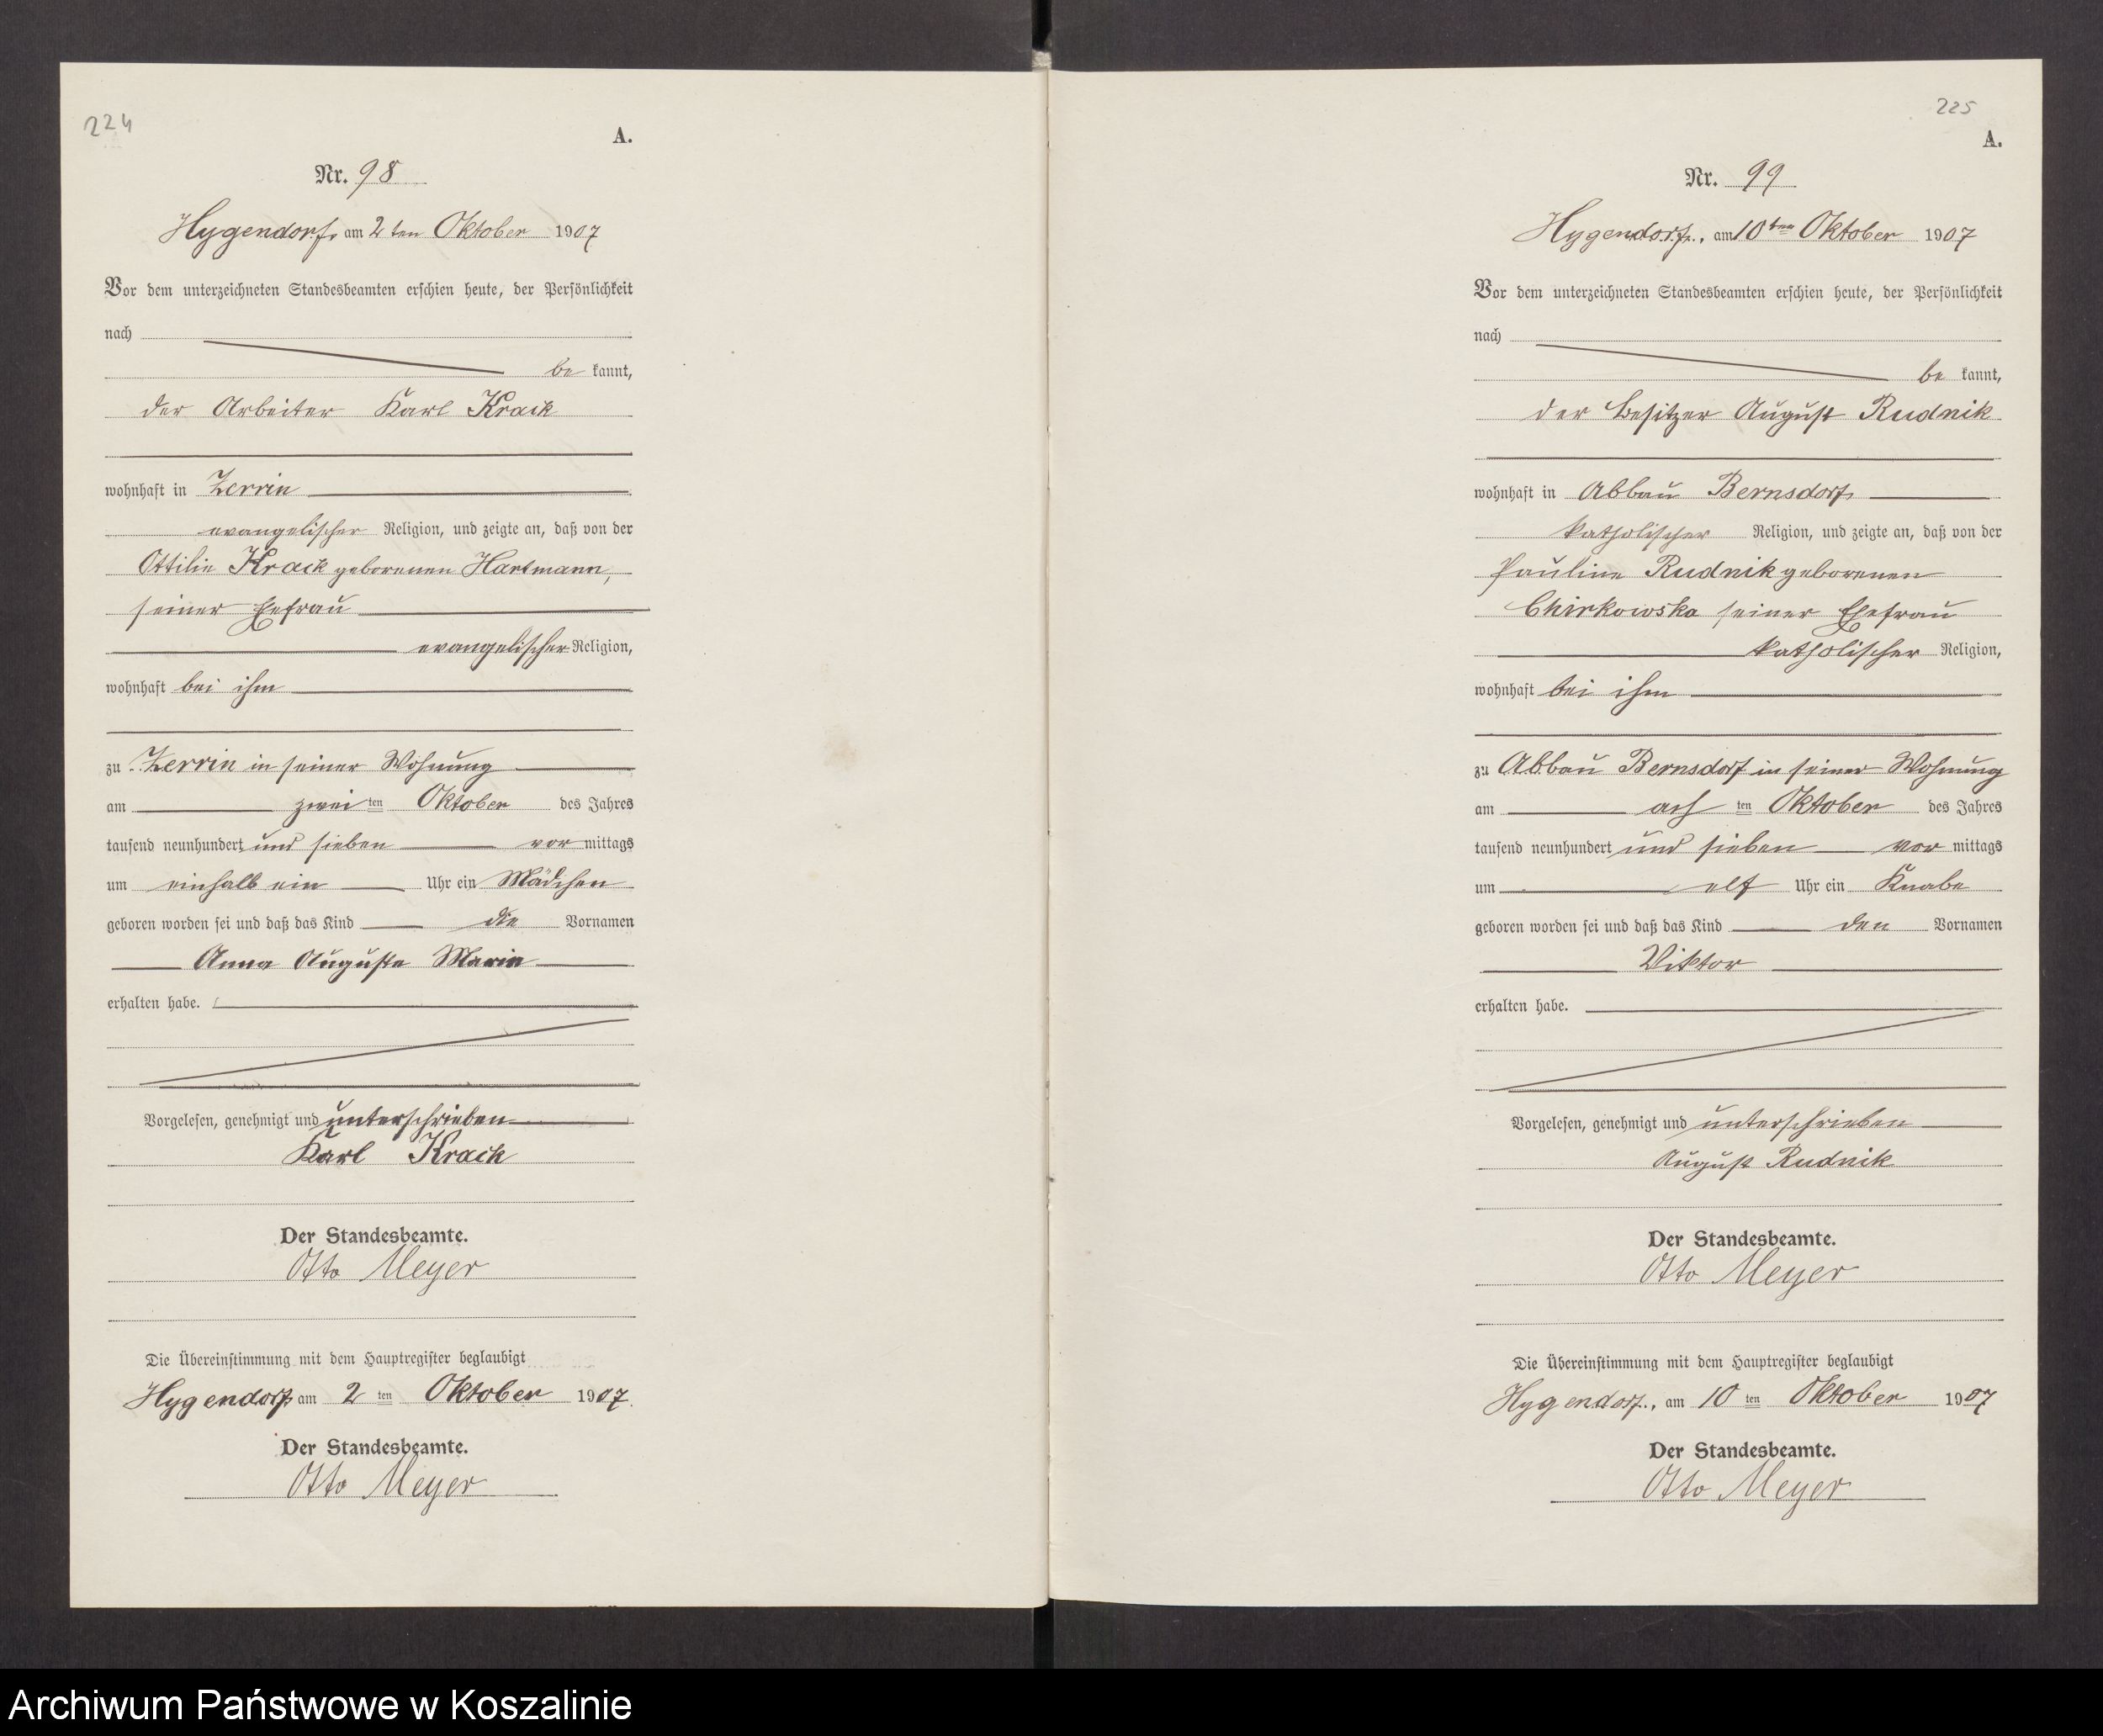 224
A.
Nr. 98
Hygendorf, am 2 ten Oktober 1907
Vor dem unterzeichneten Standesbeamten erschien heute, der Persönlichkeit
nach
be kannt,
der Arbeiter Karl Krack
wohnhaft in Zerrin
evangelischer Religion, und zeigte an, daß von der
Ottilie Krack geborenen Hartmann,
seiner Ehefrau
evangelischer Religion,
wohnhaft bei ihm
zu Zerrin in seiner Wohnung
am zwei ten Oktober des Jahres
tausend neunhundert und sieben vor mittags
um einhalb ein Uhr ein Mädchen
geboren worden sei und daß das Kind die Vornamen
Anna Auguste Marie
erhalten habe.
Vorgelesen, genehmigt und unterschrieben
Karl Krack
Der Standesbeamte.
Otto Meyer
Die Übereinstimmung mit dem Hauptregister beglaubigt
Hygendorf am 2 ten Oktober 1907.
Der Standesbeamte.
Otto Meyer
225
A.
Nr. 99
Hygendorf, am 10 ten Oktober 1907
Vor dem unterzeichneten Standesbeamten erschien heute, der Persönlichkeit
nach
be kannt,
der Besitzer August Rudnik
wohnhaft in Abbau Bernsdorf
katholischer Religion, und zeigte an, daß von der
Pauline Rudnik geborenen
Chirkowska seiner Ehefrau
katholischer Religion,
wohnhaft bei ihm
zu Abbau Bernsdorf in seiner Wohnung
am ach ten Oktober des Jahres
tausend neunhundert und sieben vor mittags
um elf Uhr ein Knabe
geboren worden sei und daß das Kind den Vornamen
Viktor
erhalten habe.
Vorgelesen, genehmigt und unterschrieben
August Rudnik
Der Standesbeamte.
Otto Meyer
Die Übereinstimmung mit dem Hauptregister beglaubigt
Hygendorf, am 10 ten Oktober 1907
Der Standesbeamte.
Otto Meyer
Archiwum Państwowe w Koszalinie